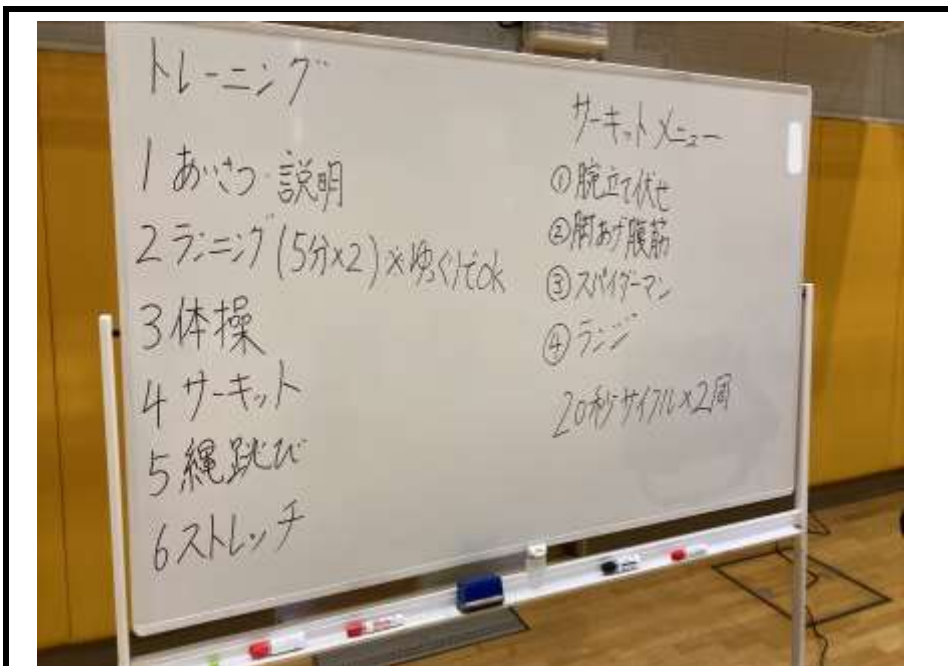 トレーニング
1 あいさつ・説明
2 ランニング (5分×2) ※ゆっくりでOK
3 体操
4 サーキット
5 縄跳び
6 ストレッチ
サーキットメニュー
① 腕立て伏せ
② 脚あげ腹筋
③ スパイダーマン
④ ランジ
20秒サイクル×2周